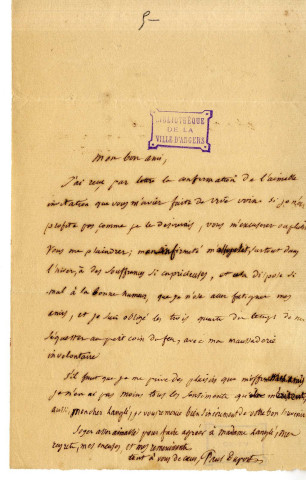 5
BIBLIOTHÈQUE
DE LA
VILLE D'ANGERS
Mon bon ami,
J'ai reçu par lettre la confirmation de l'aimable
invitation que vous m'aviez faite de vive voix si je n'en
profite pas comme je le désirerais, vous m'excuserez
Vous me plaindrez; mon infirmité surtout dans
l'hiver à des souffrances si capricieuses, et cela dispose si
mal à la bonne humeur, que je n'ose aller fatiguer mes
amis, et je suis obligé les trois quarts du temps de me
séquestrer au petit coin du feu, avec ma maussaderie
involontaire
S'il faut que je me prive des plaisirs que
je n'en ai pas moins tous les sentiments
aussi, mon cher je vous remercie bien sincèrement de votre bon souvenir
Soyez assez aimable pour faire agréer à madame mes
regrets, mes excuses, et
tout à vous de cœur, Paul Duport